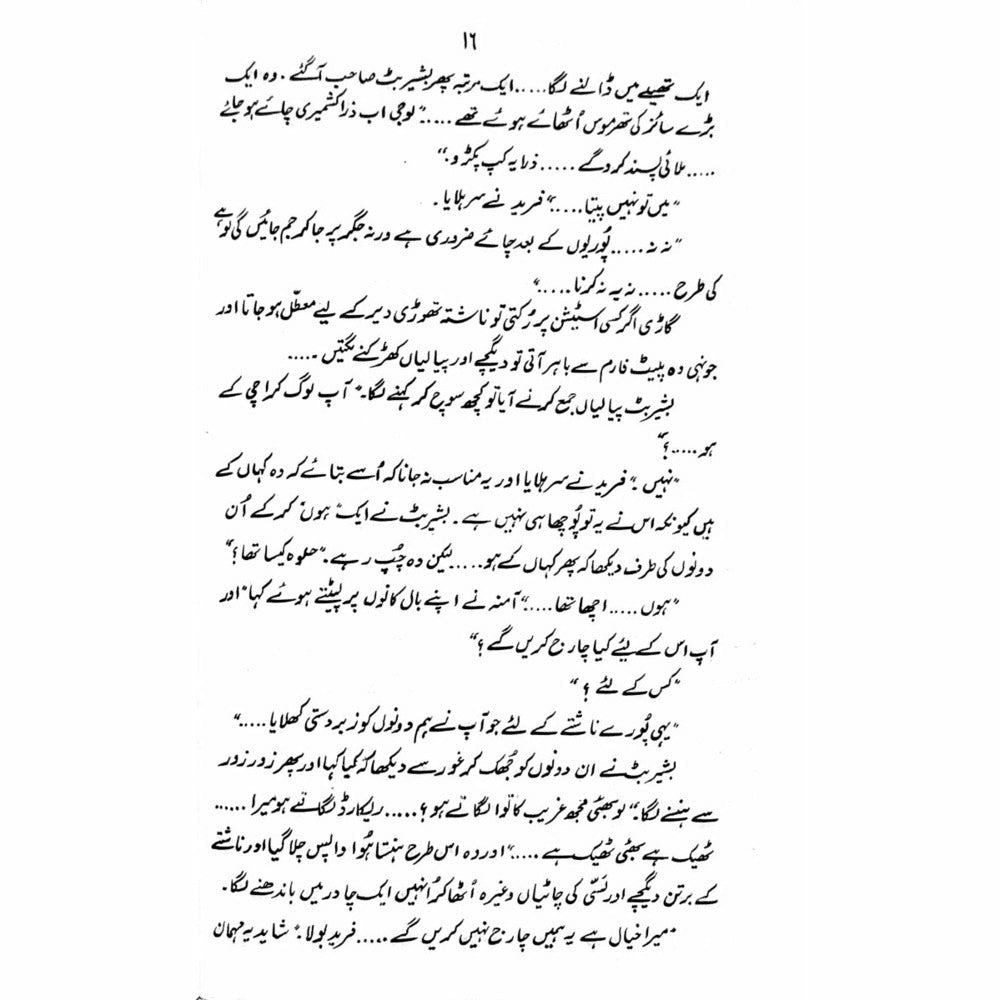 ۱٦
ایک تھیلے میں ڈالنے لگا.....ایک مرتبہ پھر بشیر بٹ صاحب آ گئے۔ وہ ایک
بڑے سائز کی تھرموس اُٹھائے ہوئے تھے....." لو جی اب ذرا کشمیری چائے ہو جائے
.....ملائی پسند کرو گے.....ذرا یہ کپ پکڑو۔"
"میں تو نہیں پیتا....." فرید نے سر ہلایا۔
"نہ نہ.....پُوریوں کے بعد چائے ضروری ہے ورنہ جگر پر جا کر جم جائیں گی لوہے
کی طرح.....نہ یہ نہ کرنا....."
گاڑی اگر کسی اسٹیشن پر رُکتی تو ناشتہ تھوڑی دیر کے لیے معطّل ہو جاتا اور
جونہی وہ پلیٹ فارم سے باہر آتی تو دیگچے اور پیالیاں کھڑکنے لگتیں۔....
بشیر بٹ پیالیاں جمع کرنے آیا تو کچھ سوچ کر کہنے لگا۔" آپ لوگ کراچی کے
ہو.....؟"
"نہیں۔" فرید نے سر ہلایا اور یہ مناسب نہ جانا کہ اُسے بتائے کہ وہ کہاں کے
ہیں کیونکہ اس نے یہ تو پُوچھا ہی نہیں ہے۔ بشیر بٹ نے ایک "ہوں" کر کے اُن
دونوں کی طرف دیکھا کہ پھر کہاں کے ہو.....لیکن وہ چُپ رہے۔" حلوہ کیسا تھا؟"
"ہوں.....اچھا تھا....." آمنہ نے اپنے بال کانوں پر لپیٹتے ہوئے کہا" اور
آپ اس کے لیئے کیا چارج کریں گے؟"
"کس کے لئے؟"
"یہی پُورے ناشتے کے لئے جو آپ نے ہم دونوں کو زبردستی کھلایا....."
بشیر بٹ نے ان دونوں کو جُھک کر غور سے دیکھا کہ کیا کہا اور پھر زور زور
سے ہنسنے لگا۔" لو بھئی مجھ غریب کا توا لگاتے ہو؟.....ریکارڈ لگاتے ہو میرا......
ٹھیک ہے بھئی ٹھیک ہے....." اور وہ اس طرح ہنستا ہُوا واپس چلا گیا اور ناشتے
کے برتن دیگچے اور لَسّی کی چاٹیاں وغیرہ اُٹھا کر اُنہیں ایک چادر میں باندھنے لگا۔
"میرا خیال ہے یہ ہمیں چارج نہیں کریں گے.....فرید بولا۔" شاید یہ مہمان